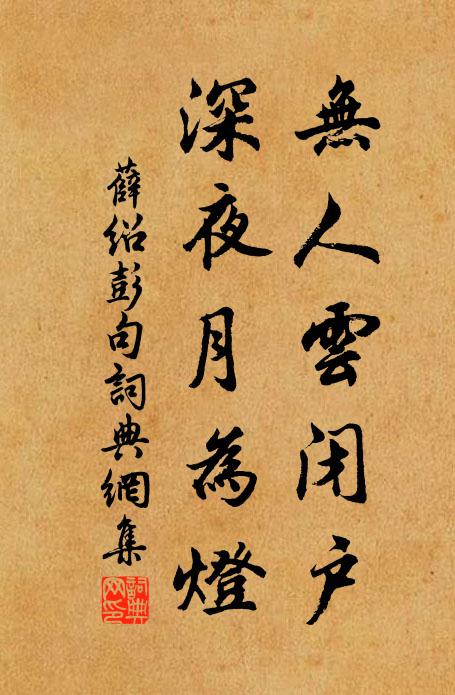 無人雲闭户
深夜月為燈
薛紹彭句詞典網集
詞典网印